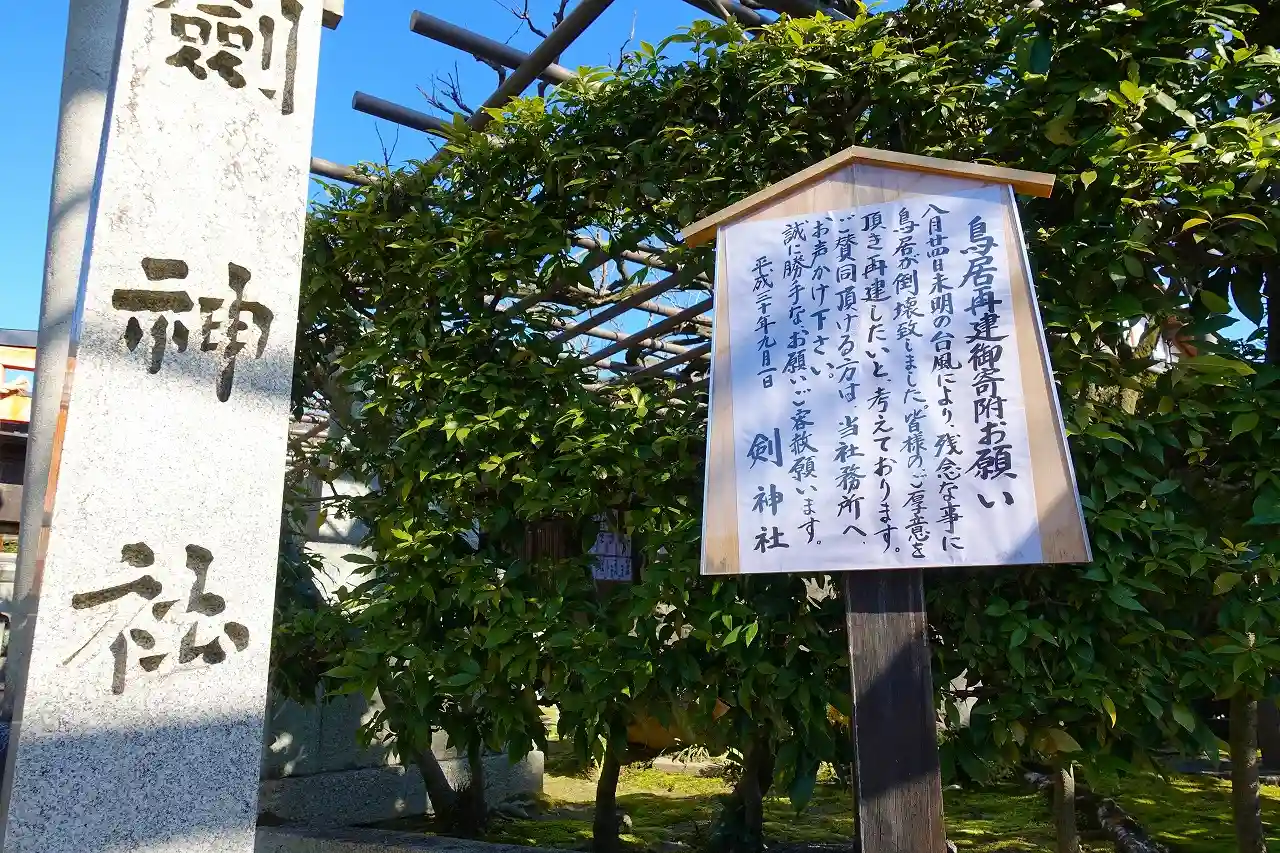 劔神社
鳥居再建御寄附お願い
八月廿四日未明の台風により、残念な事に
鳥居が倒壊致しました。皆様のご厚意を
頂き再建したいと、考えております。
ご賛同頂ける方は、当社務所へ、
お声かけ下さい。
誠に勝手な、お願いご容赦願います。
平成三十年九月一日
剣神社